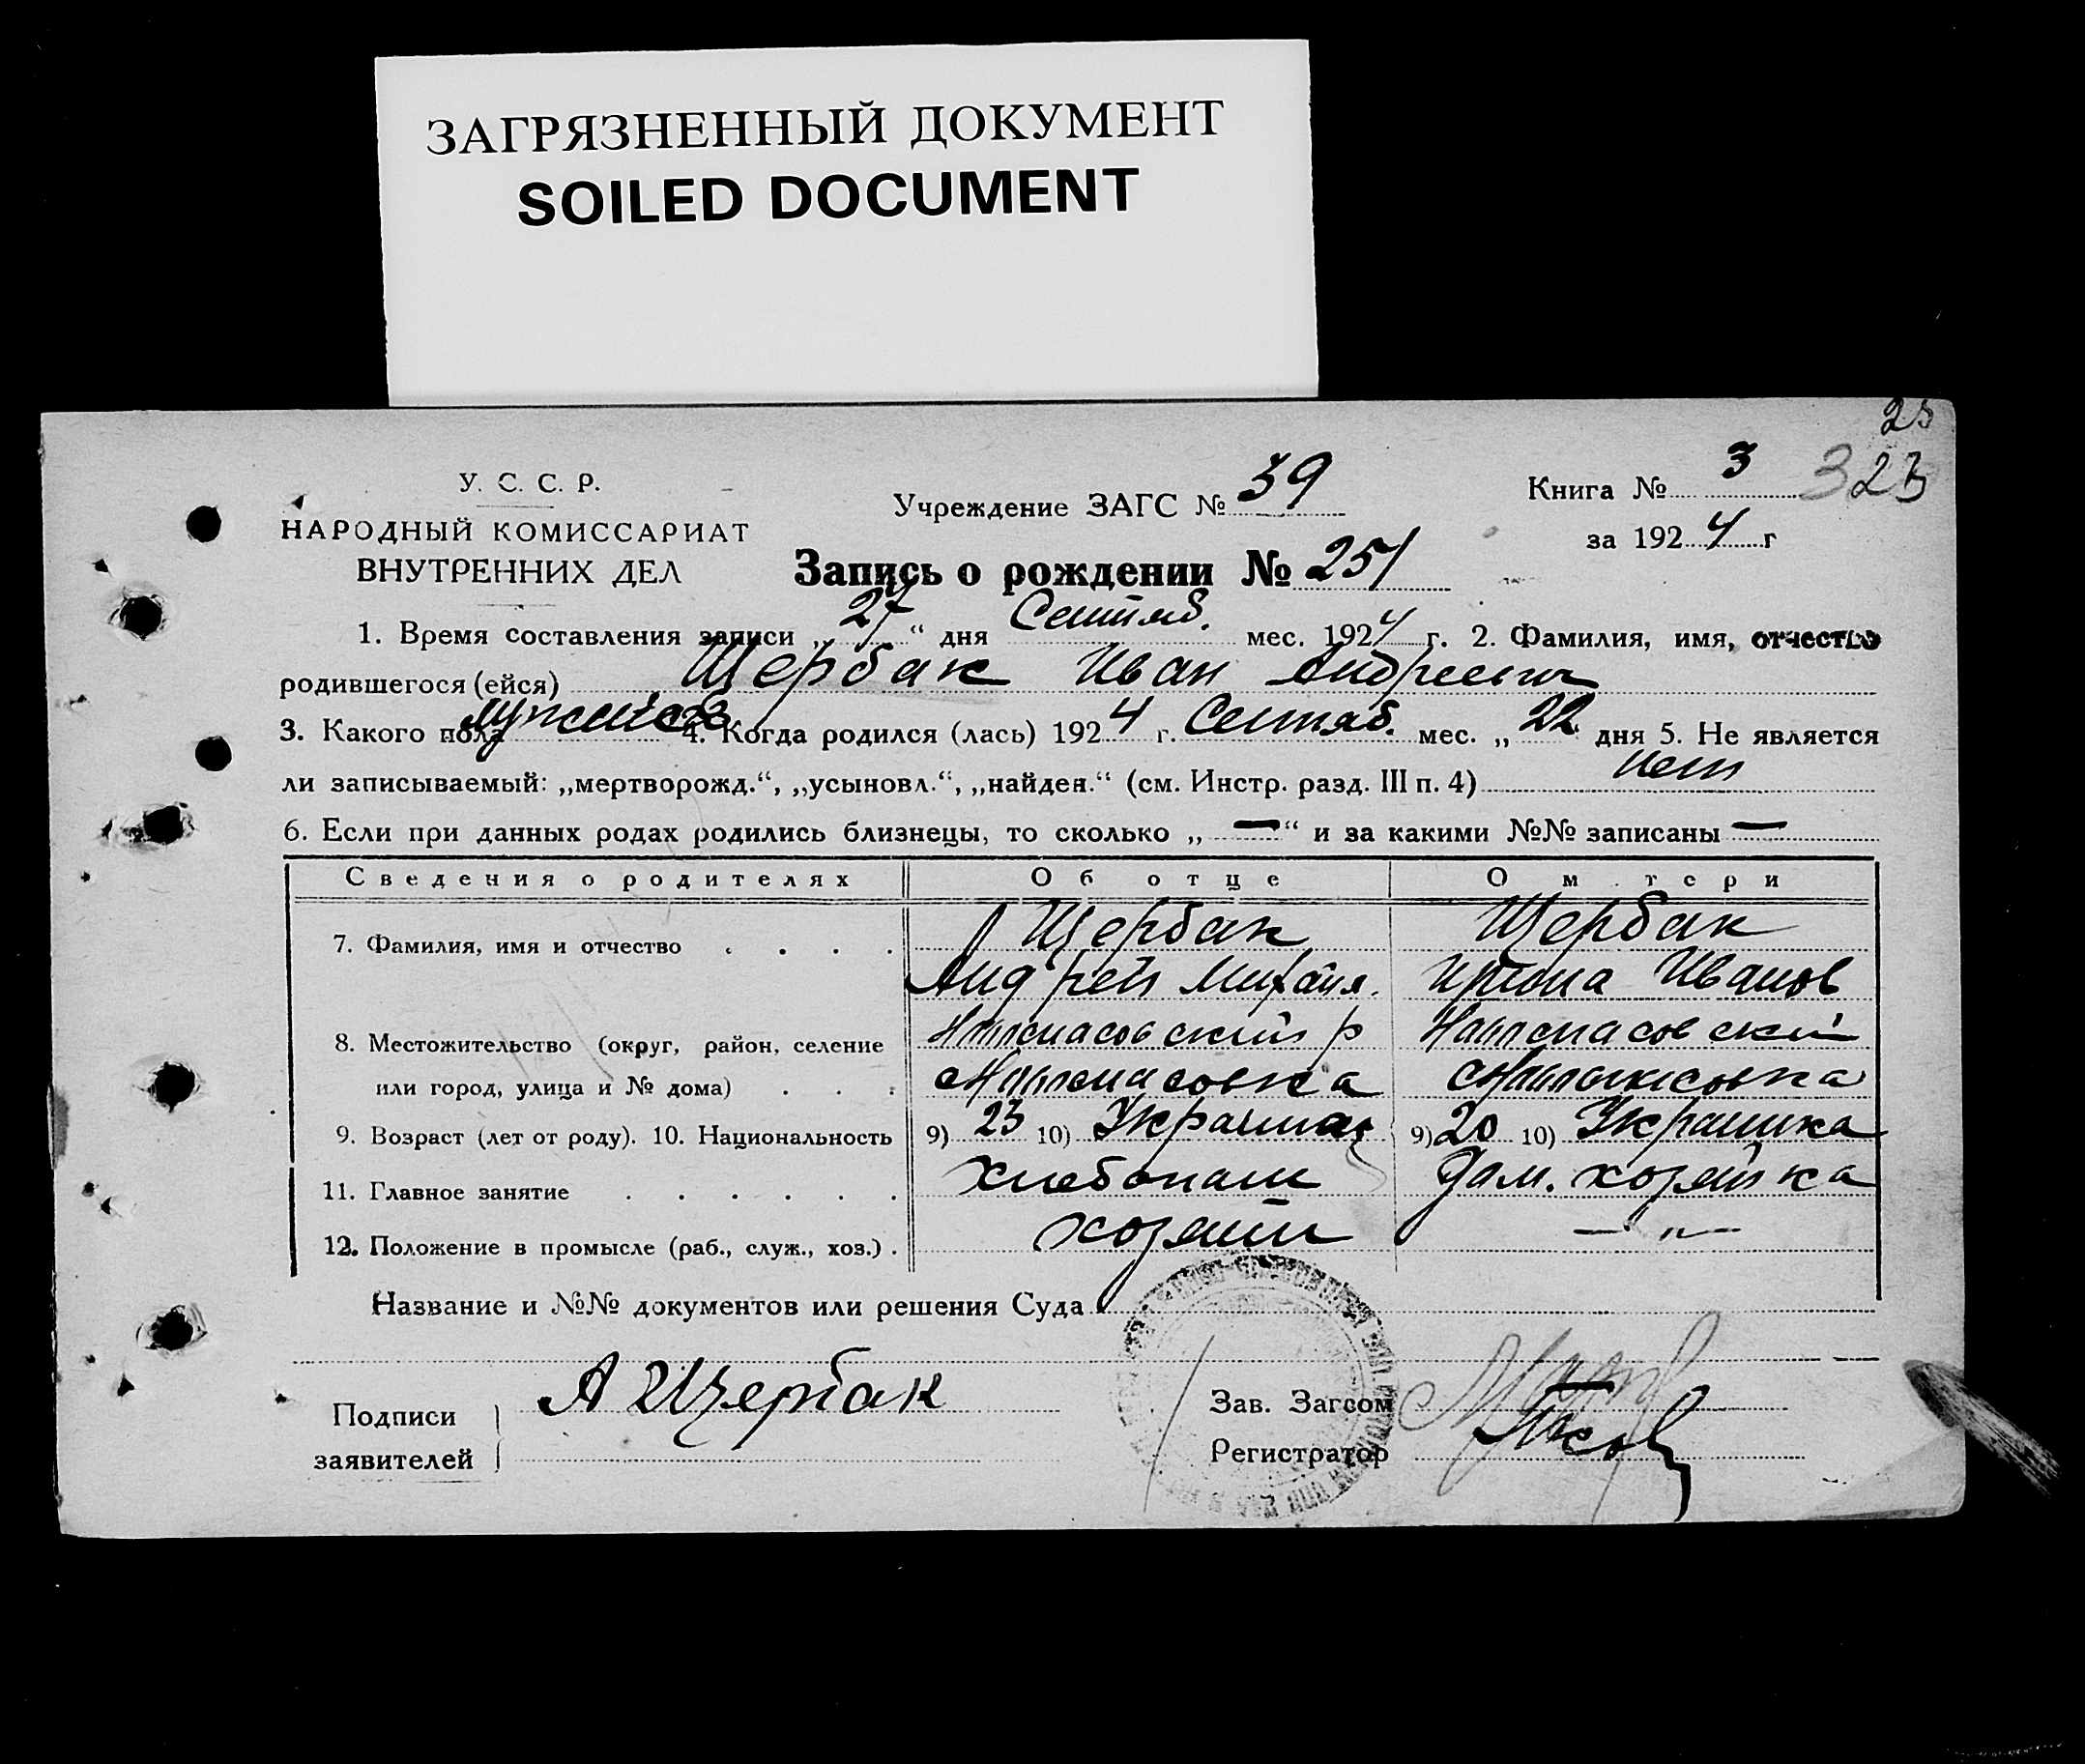 ЗАГРЯЗНЕННЫЙ ДОКУМЕНТ
SOILED DOCUMENT
23
У. С. С. Р.
НАРОДНЫЙ КОМИССАРИАТ
ВНУТРЕННИХ ДЕЛ
Учреждение ЗАГС № 39
Книга № 3 323
за 1924 г
Запись о рождении № 251
1. Время составления записи „27“ дня Сентяб. мес. 1924 г. 2. Фамилия, имя, отчество
родившегося (ейся) Щербак Иван Андреевич
3. Какого пола мужской 4. Когда родился (лась) 1924 г. Сентяб. мес. „22 дня 5. Не является
ли записываемый: „мертворожд.“, „усыновл.“, „найден.“ (см. Инстр. разд. III п. 4) Нет
6. Если при данных родах родились близнецы, то сколько „—“ и за какими №№ записаны —
Сведения о родителях Об отце О м тери
7. Фамилия, имя и отчество . . . . Щербак Щербак
Андрей Михайл. Ирина Иванов
8. Местожительство (округ, район, селение
или город, улица и № дома) . . .
9. Возраст (лет от роду). 10. Национальность 9) 23 10) Украинец 9) 20 10) Украинка
11. Главное занятие . . . . . . Хлебопаш Дом. хозяйка
12. Положение в промысле (раб., служ., хоз.) . хозяин — „ —
Название и №№ документов или решения Суда
Подписи А Щербак
заявителей
Зав. Загсом
Регистратор